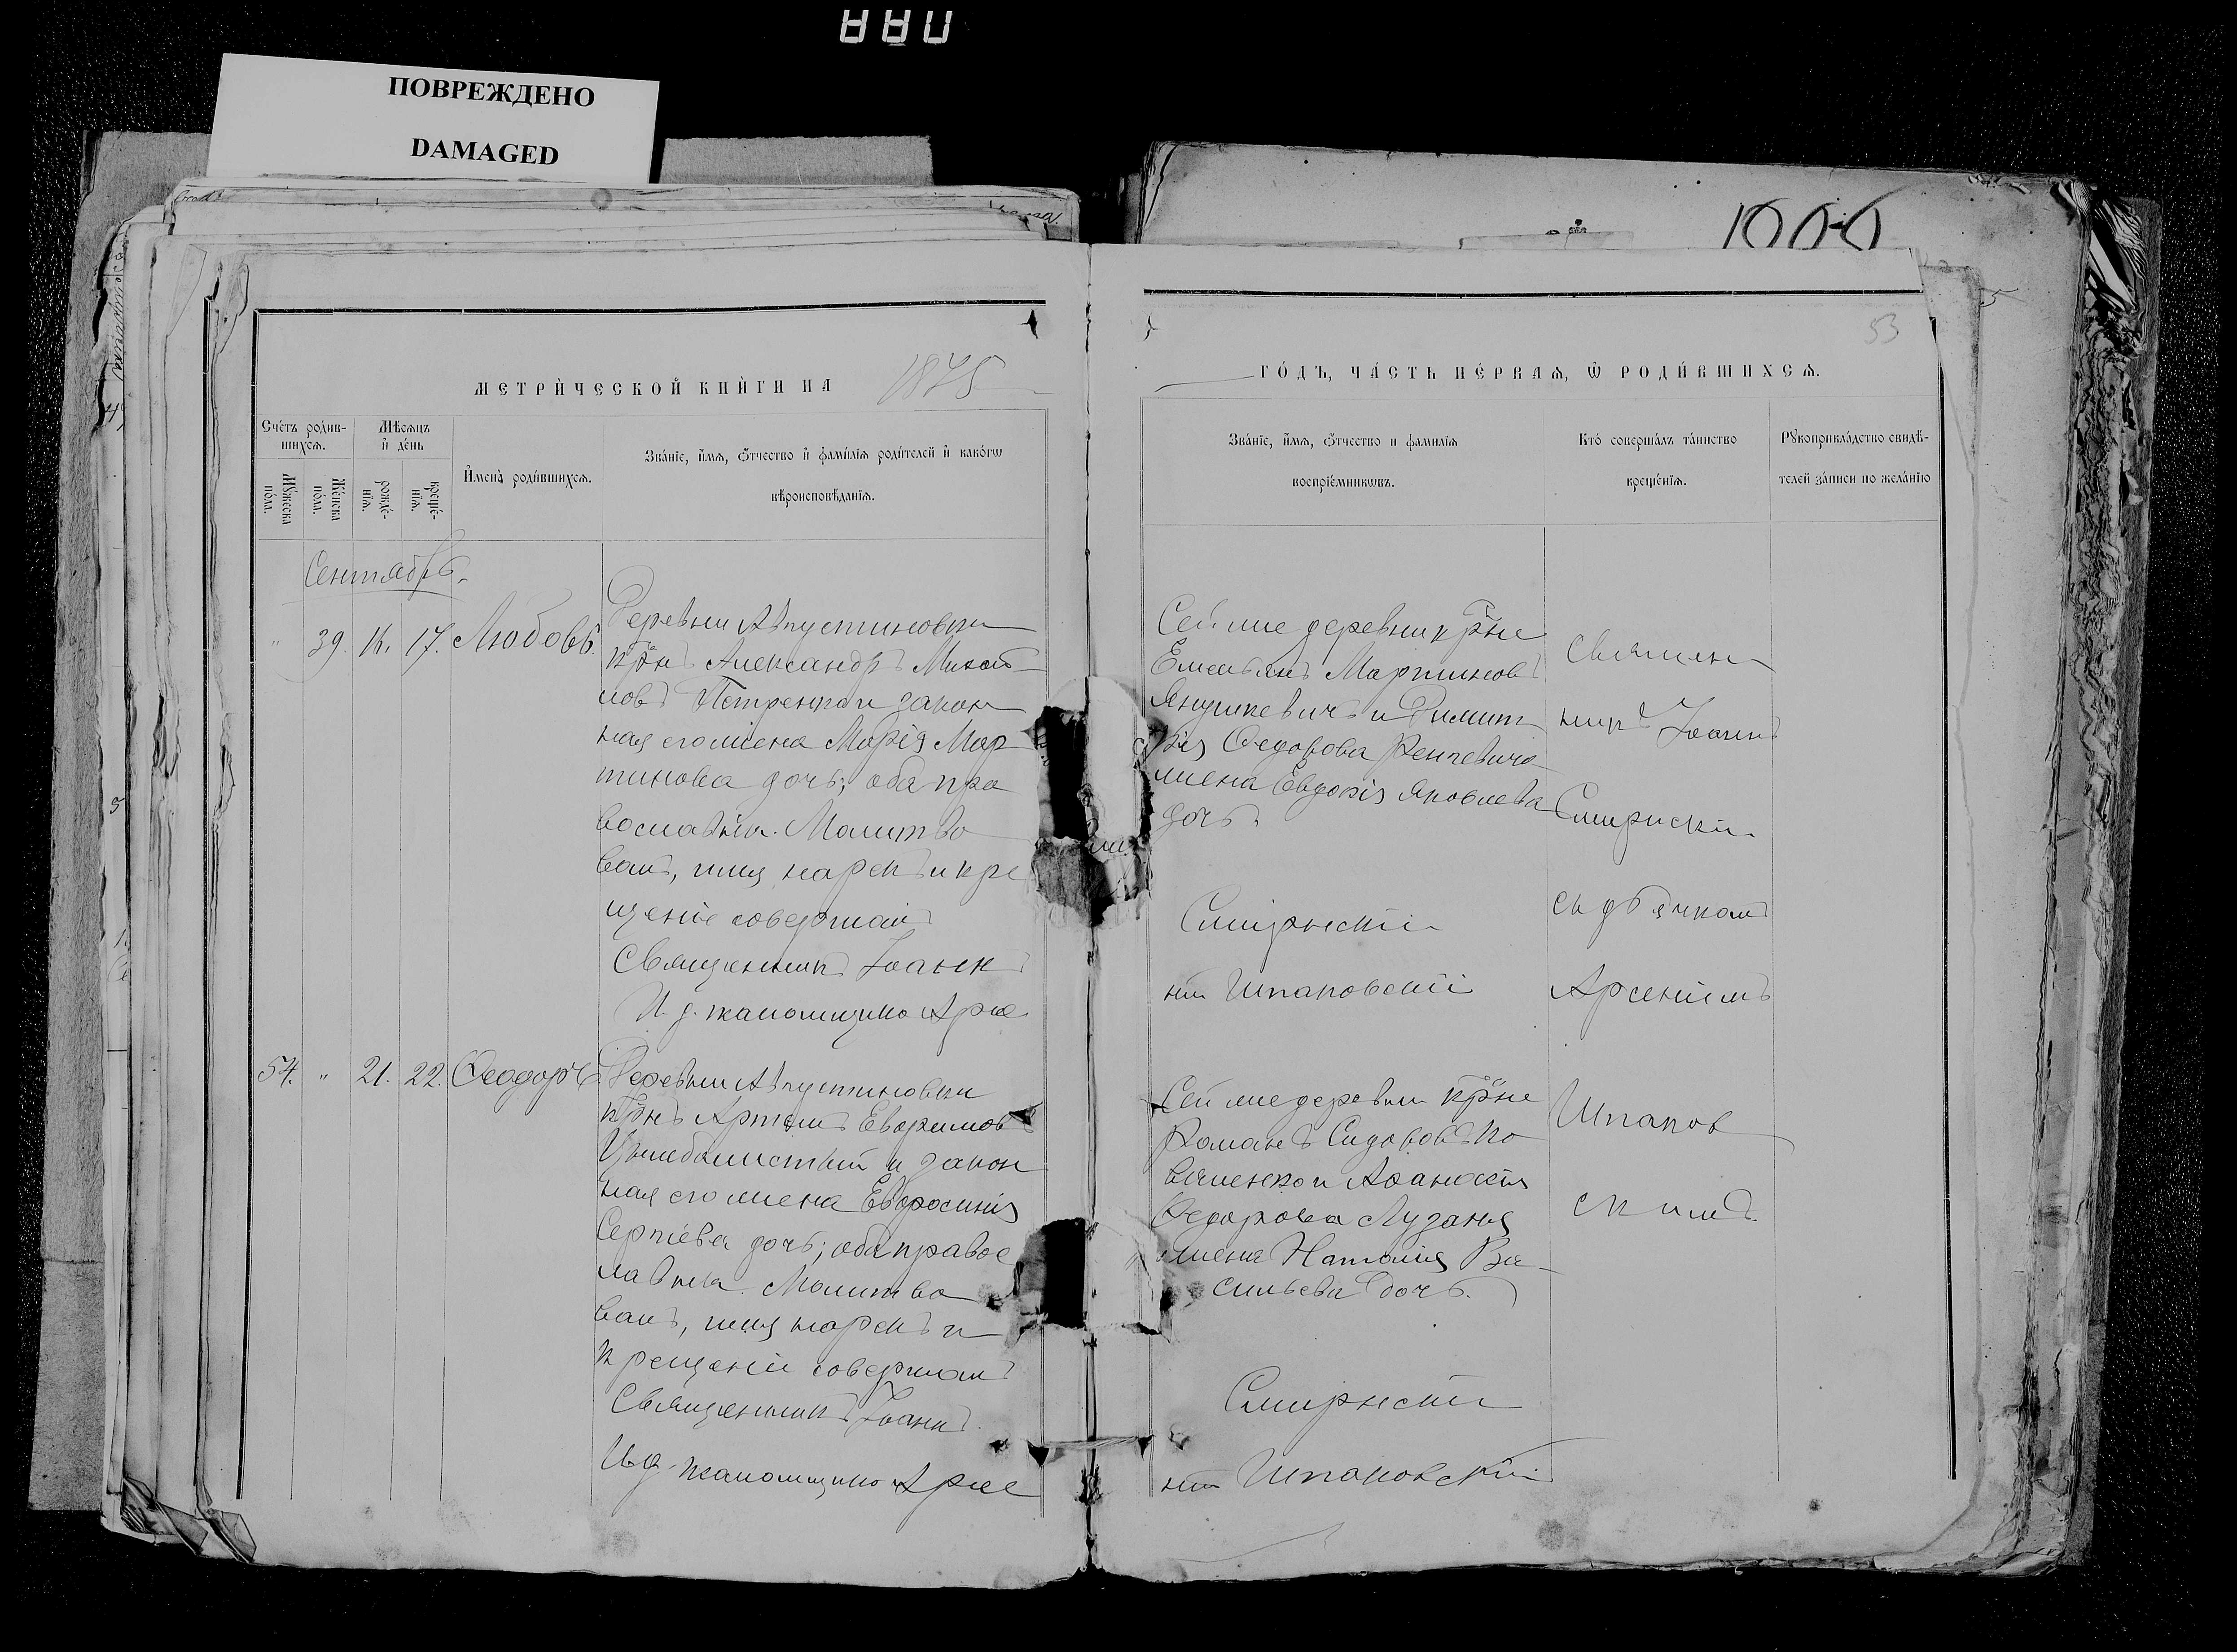 ПОВРЕЖДЕНО
DAMAGED
53
МЕТРИ́ЧЕСКОЙ КНИ́ГИ НА 1875
ГО́ДЪ, ЧА́СТЬ ПЕ́РВАѦ, Ѿ РОДИ́ВШИХСѦ.
Сче́тъ роди́в-
шихсѧ.
Мѣ́сѧцъ
и҆ де́нь
Мꙋ́жеска
по́ла.
Же́нска
по́ла.
рожде́-
нїѧ.
креще́-
нїѧ.
И҆мена̀ роди́вшихсѧ.
Зва́нїе, и҆́мѧ, ѻ҆́тчество и҆ фами́лїѧ роди́телей и҆ како́гѡ
вѣроисповѣ́данїѧ.
Зва́нїе, и҆́мѧ, ѻ҆́тчество и фами́лїѧ
воспрїе́мникѡвъ.
Кто̀ соверша́лъ та́инство
креще́нїѧ.
Рꙋкоприкла́дство свидѣ́-
телей за́писи по жела́нїю
Сентябрь.
" 39. 16. 17. Любовь.
Деревни Августиновки
крнъ Александръ Михай
ловъ Петренко и закон
ная его жена Марія Мар
тинова дочь; оба пра
вославны. Молитво
валъ, имя нарекъ и кре
щеніе совершалъ
Священникъ Іоаннъ
И. д. псаломщика Арсе
Сей же деревни крне
Емельянъ Мартиновъ
Янушкевичъ и Димит
рія Федорова Ренкевича
жена Евдокія Яковлева
дочь.
Смирнскій
ній Шпаковскій
Священ
никъ Іоаннъ
Смирнскій
съ дьячкомъ
Арсеніемъ
Шпаков
скимъ.
54. " 21. 22. Ѳеодоръ.
Деревни Августиновки
крнъ Артемъ Евфимовъ
и закон
ная его жена Евфросинія
Сергіева дочь; оба правос
лавны. Молитво
валъ, имя нарекъ и
крещеніе совершалъ
Священникъ Іоаннъ.
И. д. псаломщика Арсе
Сей же деревни крне
Романъ Сидоровъ Ко
и Афанасія
Федорова
жена Наталія Ва
сильева дочь.
Смирнскій
ній Шпаковскій